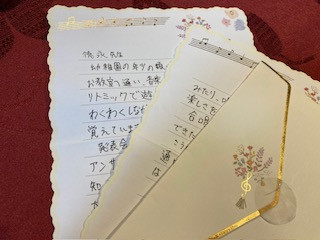 先生
幼稚園の年少の頃
お教室へ通い、音楽
リトミックで遊
わくわくしなが
覚えていま
発表会
アンサ
勉
みたり、
楽しさを
合唱
できた
こう
通
は